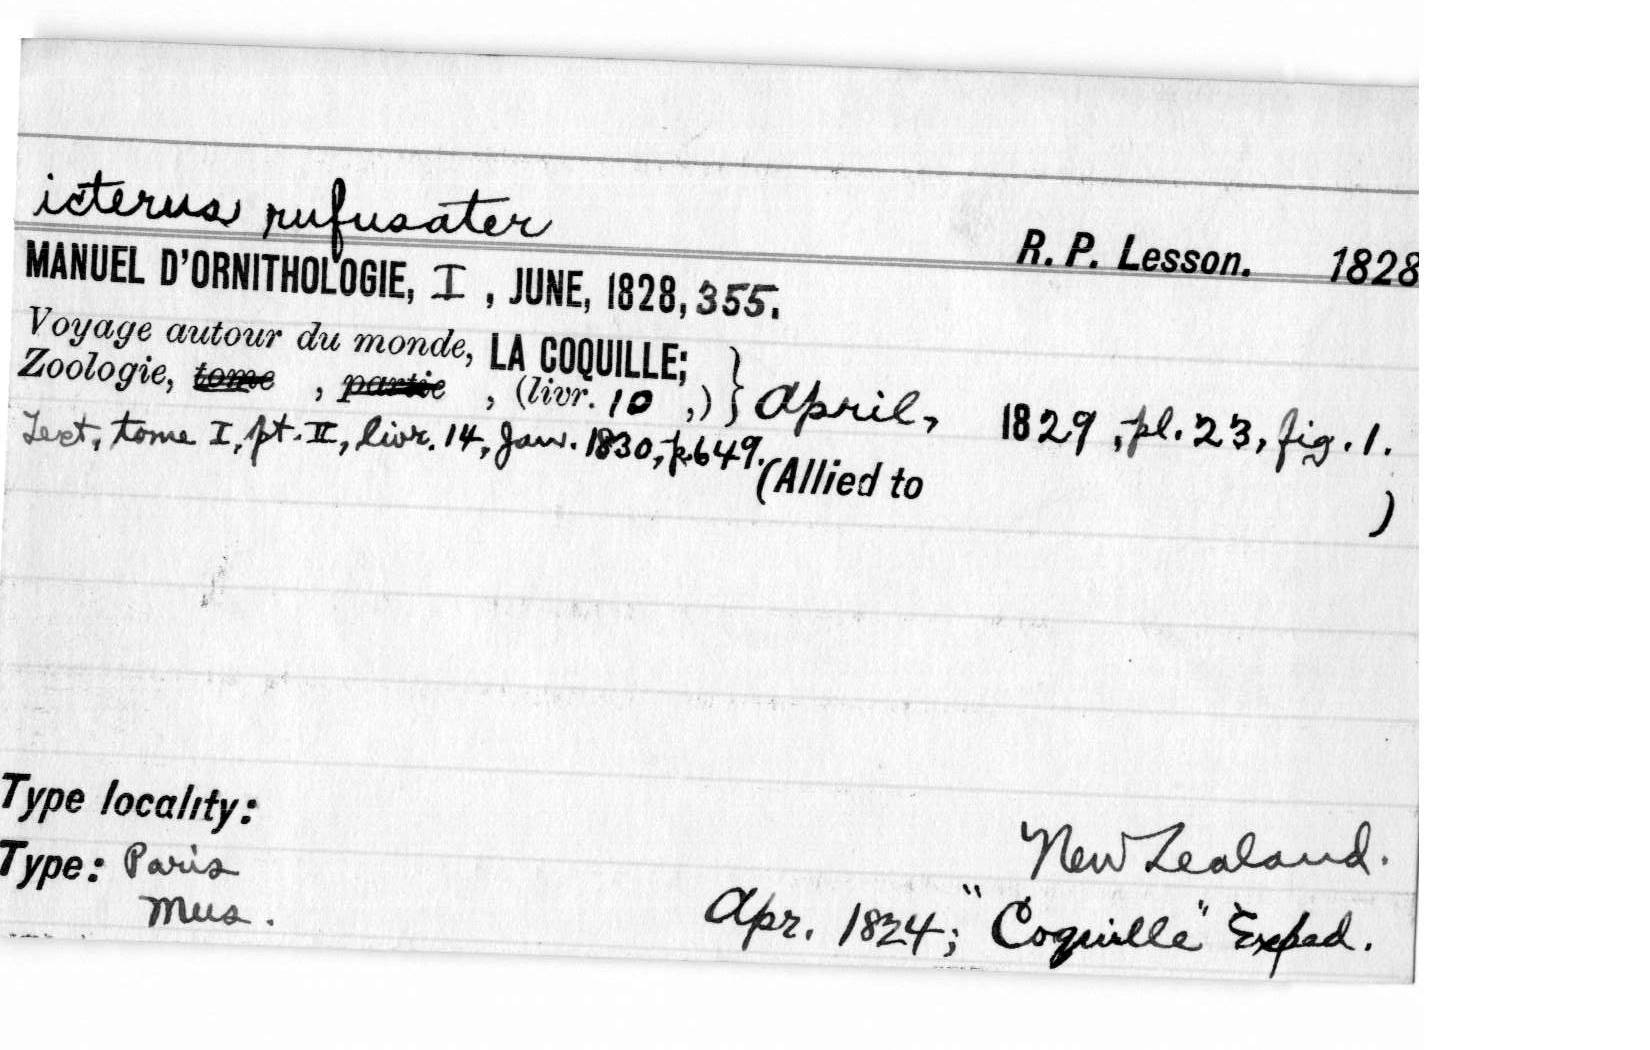 icterus rufusater
R. P. Lesson. 1828
MANUEL D'ORNITHOLOGIE, I , JUNE, 1828, 355.
Voyage autour du monde, LA COQUILLE;
Zoologie, tome , partie , (livr. 10 ,) } April, 1829, pl. 23, fig. 1.
Text, tome I, pt. II, livr. 14, Jan. 1830, p. 649.
(Allied to )
Type locality:
New Zealand.
Type: Paris
Mus.
Apr. 1824; "Coquille" Exped.